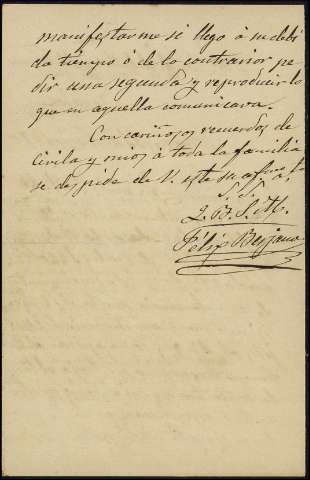 manifestarme si llego á su debi
do tiempo ó de lo contrario pe
dir una segunda y reproducir lo
que en aquella comunicara.
Con cariñosos recuerdos de
Civila y mios á toda la familia
se despide de V. este su afmo.
S. S.
Q. B. S. M.
Félix Bejjano